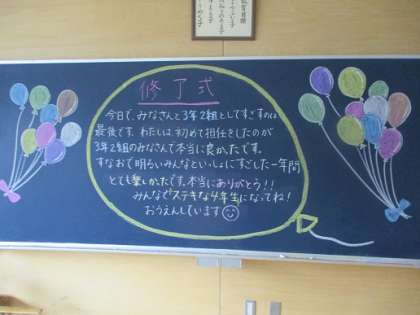 修了式
今日で、みなさんと3年2組としてすごすのは
最後です。わたしは、初めて担任をしたのが
3年2組のみなさんで本当に良かったです。
すなおで明るいみんなといっしょにすごした一年間
とても楽しかったです。本当にありがとう!!
みんなでステキな4年生になってね!
おうえんしています